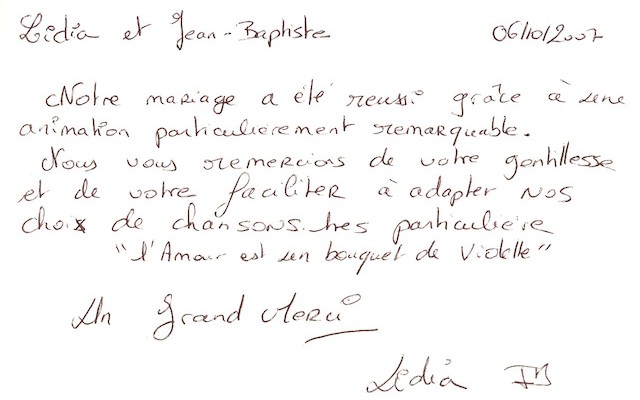 Lidia et Jean-Baptiste 06/10/2007
Notre mariage a été reussi grâce à une
animation particulièrement remarquable.
Nous vous remercions de votre gentillesse
et de votre faciliter à adapter nos
choix de chansons très particulière
"l'Amour est un bouquet de Violette"
Un Grand Merci
Lidia JB